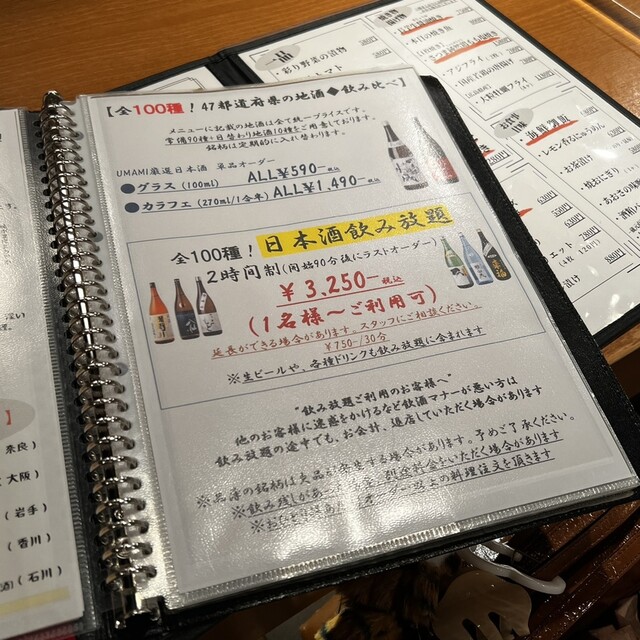 【全100種！47都道府県の地酒◆飲み比べ】
メニューに記載の地酒は全て統一プライスです。
常備90種+日替わり地酒10種をご用意しております。
銘柄は定期的に入れ替わります。
UMAMI厳選日本酒 単品オーダー
●グラス(100ml) ALL¥590-税込
●カラフェ(270ml/1合半) ALL¥1,490-税込
全100種！日本酒飲み放題
2時間制(開始90分後にラストオーダー)
¥3,250-税込
(1名様～ご利用可)
延長ができる場合があります。スタッフにご相談ください。
¥750-/30分
※生ビールや、各種ドリンクも飲み放題に含まれます
"飲み放題ご利用のお客様へ"
他のお客様に迷惑をかけるなど飲酒マナーが悪い方は
飲み放題の途中でも、お会計、退店していただく場合があります
予めご了承ください。
※品薄の銘柄は欠品が発生する場合があります。
※飲み残しがあ
いただく場合があります
以上の料理注文を頂きます
奈良)
大阪)
(岩手)
(香川)
(石川)
一品
彩り野菜の漬物
トマト
アジフライ
海鮮
お茶漬け
焼おにぎり